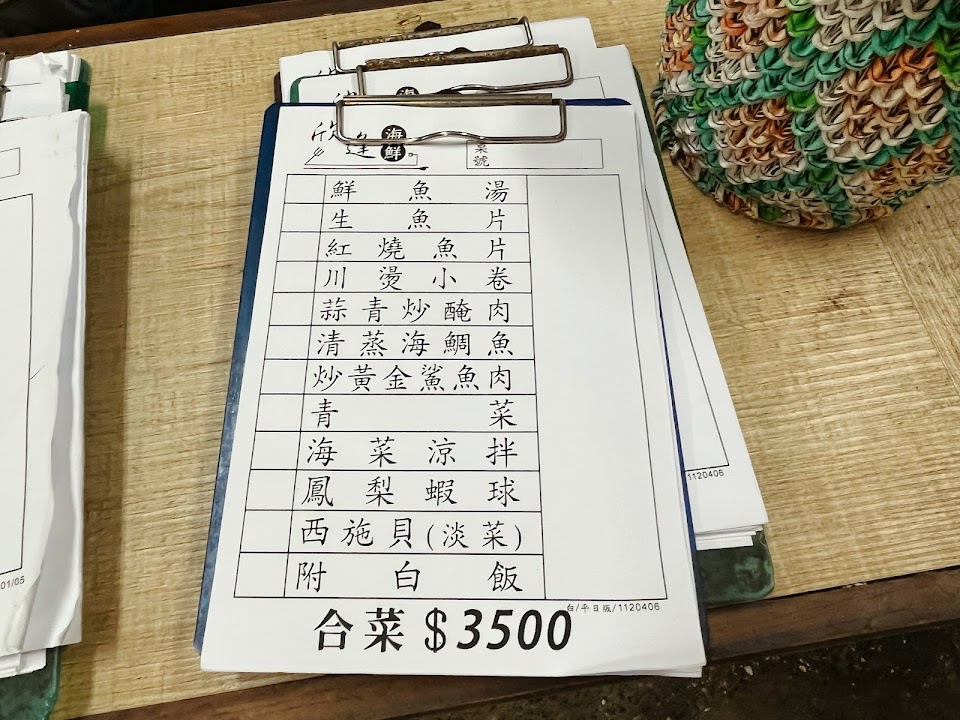 欣進海鮮
桌號
鮮魚湯
生魚片
紅燒魚片
川燙小卷
蒜青炒醃肉
清蒸海鯛魚
炒黃金鯊魚肉
青菜
海菜涼拌
鳳梨蝦球
西施貝(淡菜)
附白飯
白/平日版/1120406
合菜$3500
1120406
01/05